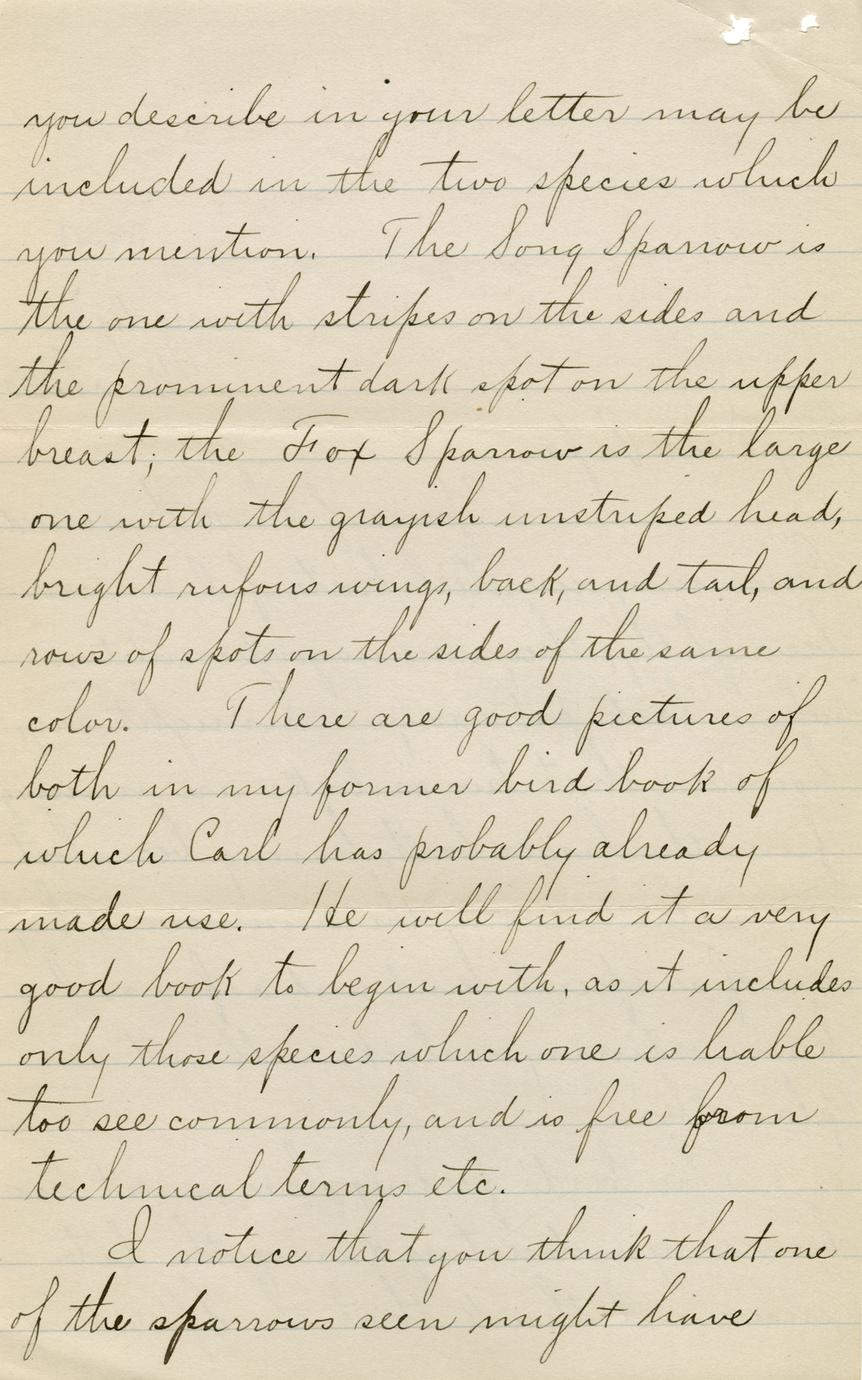 you describe in your letter may be
included in the two species which
you mention. The Song Sparrow is
the one with stripes on the sides and
the prominent dark spot on the upper
breast; the Fox Sparrow is the large
one with the grayish unstriped head,
bright rufous wings, back, and tail, and
rows of spots on the sides of the same
color. There are good pictures of
both in my former bird book of
which Carl has probably already
made use. He will find it a very
good book to begin with, as it includes
only those species which one is liable
too see commonly, and is free from
technical terms etc.
I notice that you think that one
of the sparrows seen might have